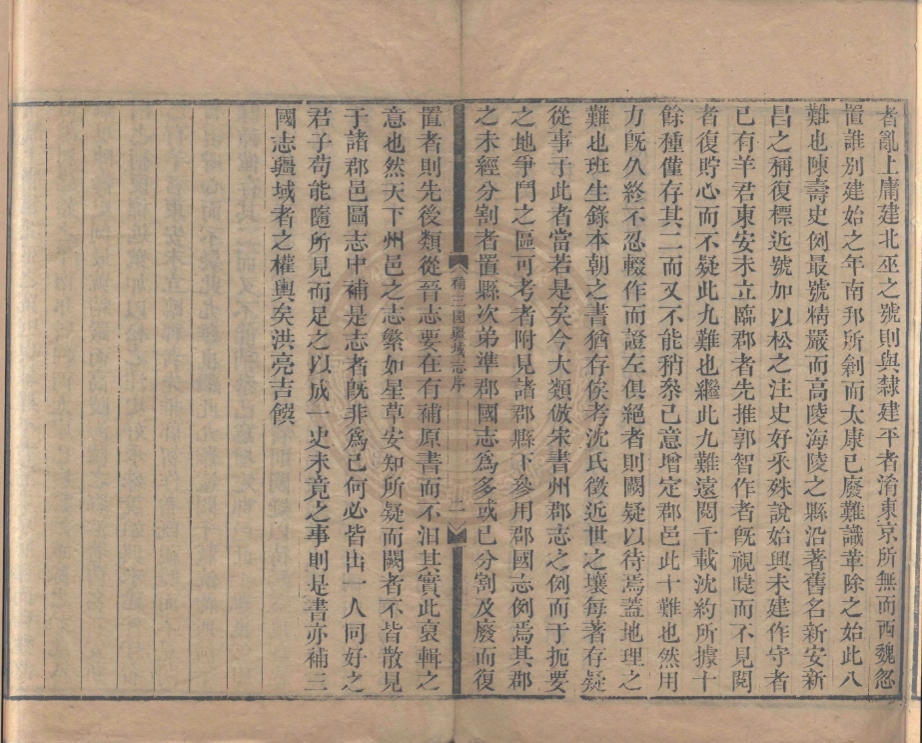 者亂上庸建北巫之號則與隸建平者淆東京所無而西魏忽
置誰別建始之年南邦所剩而太康已廢難識革除之始此八
難也陳壽史例最號精嚴而高陵海陵之縣沿著舊名新安新
昌之稱復標近號加以松之注史好采殊說始興未建作守者
已有羊君東安未立臨郡者先推郭智作者旣視𥇛而不見閱
者復貯心而不疑此九難也繼此九難遠閱千載沈約所據十
餘種僅存其二而又不能稍參己意增定郡邑此十難也然用
力旣久終不忍輟作而證左俱絕者則闕疑以待焉蓋地理之
難也班生錄本朝之書猶存俟考沈氏徵近世之壤每著存疑
從事于此者當若是矣今大類倣宋書州郡志之例而于扼要
之地爭鬥之區可考者附見諸郡縣下參用郡國志例焉其郡
之未經分割者置縣次弟準郡國志爲多或已分割及廢而復
補三國疆域志序
二
置者則先後類從晉志要在有補原書而不汨其實此裒輯之
意也然天下州邑之志繁如星草安知所疑而闕者不皆散見
于諸郡邑圖志中補是志者旣非爲己何必皆出一人同好之
君子苟能隨所見而足之以成一史未竟之事則是書亦補三
國志疆域者之權輿矣洪亮吉饌